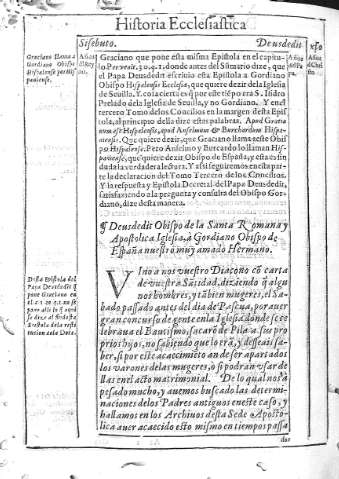 Historia Ecclesiastica
Sisebuto.
Deusdedit
Graciano llama a
Gordiano Obispo
Hispalense por Hispaniense.
Graciano que pone esta misma Epistola en el capitu-
lo Pervenit, 30. q. 1. donde antes del Sumario dize, que
el Papa Deusdedit escrivio esta Epistola a Gordiano
Obispo Hispalensis Ecclesiæ, que quiere dezir de la Iglesia
de Sevilla. Y cosa cierta es que por este tiẽpo era S. Isidro
Prelado de la Iglesia de Sevilla, y no Gordiano. Y en el
tercero Tomo de los Concilios en la margen desta Epis-
tola, al principio dello dize estas palabras. Apud Gratia-
num est Hispalensis, apud Anselmum & Burchardum Hispa-
niensis. Que quiere dezir, que Graciano llama este Obis
po Hispalense. Pero Anselmo y Burcardo lo llaman His-
paniense, que quiere dezir Obispo de España, y esta es sin
duda la verdadera lectura. Y assi seguiremos en esta par-
te la declaracion del Tomo Tercero de los Concilios.
Y la respuesta y Epistola Decretal del Papa Deusdedit,
satisfaziendo a la pregunta y consulta del Obispo Gor-
diano, dize desta manera.
¶ Deusdedit Obispo de la Santa Romana y
Apostolica Iglesia, à Gordiano Obispo de
España nuestro muy amado Hermano.
Vino a nos vuestro Diacono cõ carta
de vuestra Sãtidad, diziendo q̃ algu
nos hombres, y tãbien mugeres, el Sa
bado passado antes del dia de Pascua, por aver
gran concurso de gente en la Iglesia donde se ce
lebrava el Bautismo, sacarõ de Pila a sus pro
prios hijos, no sabiendo que lo erã, y desseais sa-
ber, si por este acaecimiẽto an de ser apartados
los varones de las mugeres, o si podran usar de
llas en el acto matrimonial. De lo qual nos à
pesado mucho, y avemos buscado las determi-
naciones de los Padres antiguos en este caso, y
hallamos en los Archivos desta Sede Apostó-
lica aver acaecido esto mismo en tiempos passa
dos